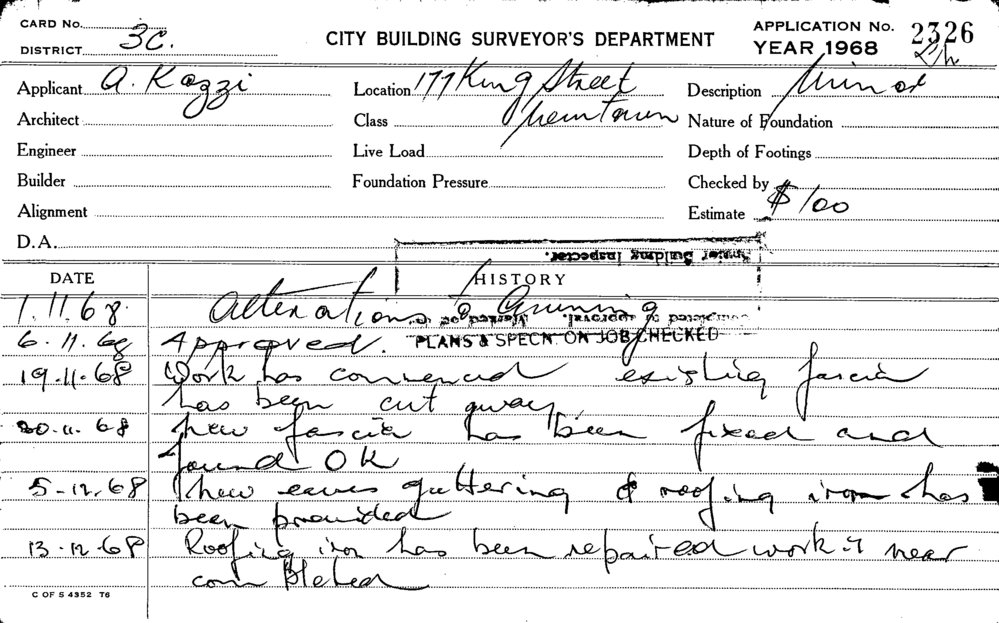 CARD No.
DISTRICT 3C.
CITY BUILDING SURVEYOR'S DEPARTMENT
APPLICATION No. 2326
YEAR 1968
Applicant A. Kazzi
Location 177 King Street
Description Minor
Architect
Class Newtown
Nature of Foundation
Engineer
Live Load
Depth of Footings
Builder
Foundation Pressure
Checked by
Alignment
Estimate $100
D.A.
Senior Building Inspector.
DATE
HISTORY
1.11.68 Alterations to Awning
completed as approved. Marked off
6.11.68 Approved. PLANS & SPECN. ON JOB CHECKED
19.11.68 Work has commenced existing fascia
has been cut away
20.11.68 New fascia has been fixed and
found OK
5-12.68 New eaves guttering & roofing iron has
been provided
13.12.68 Roofing iron has been repaired work is near
completed
C OF S 4352 T6